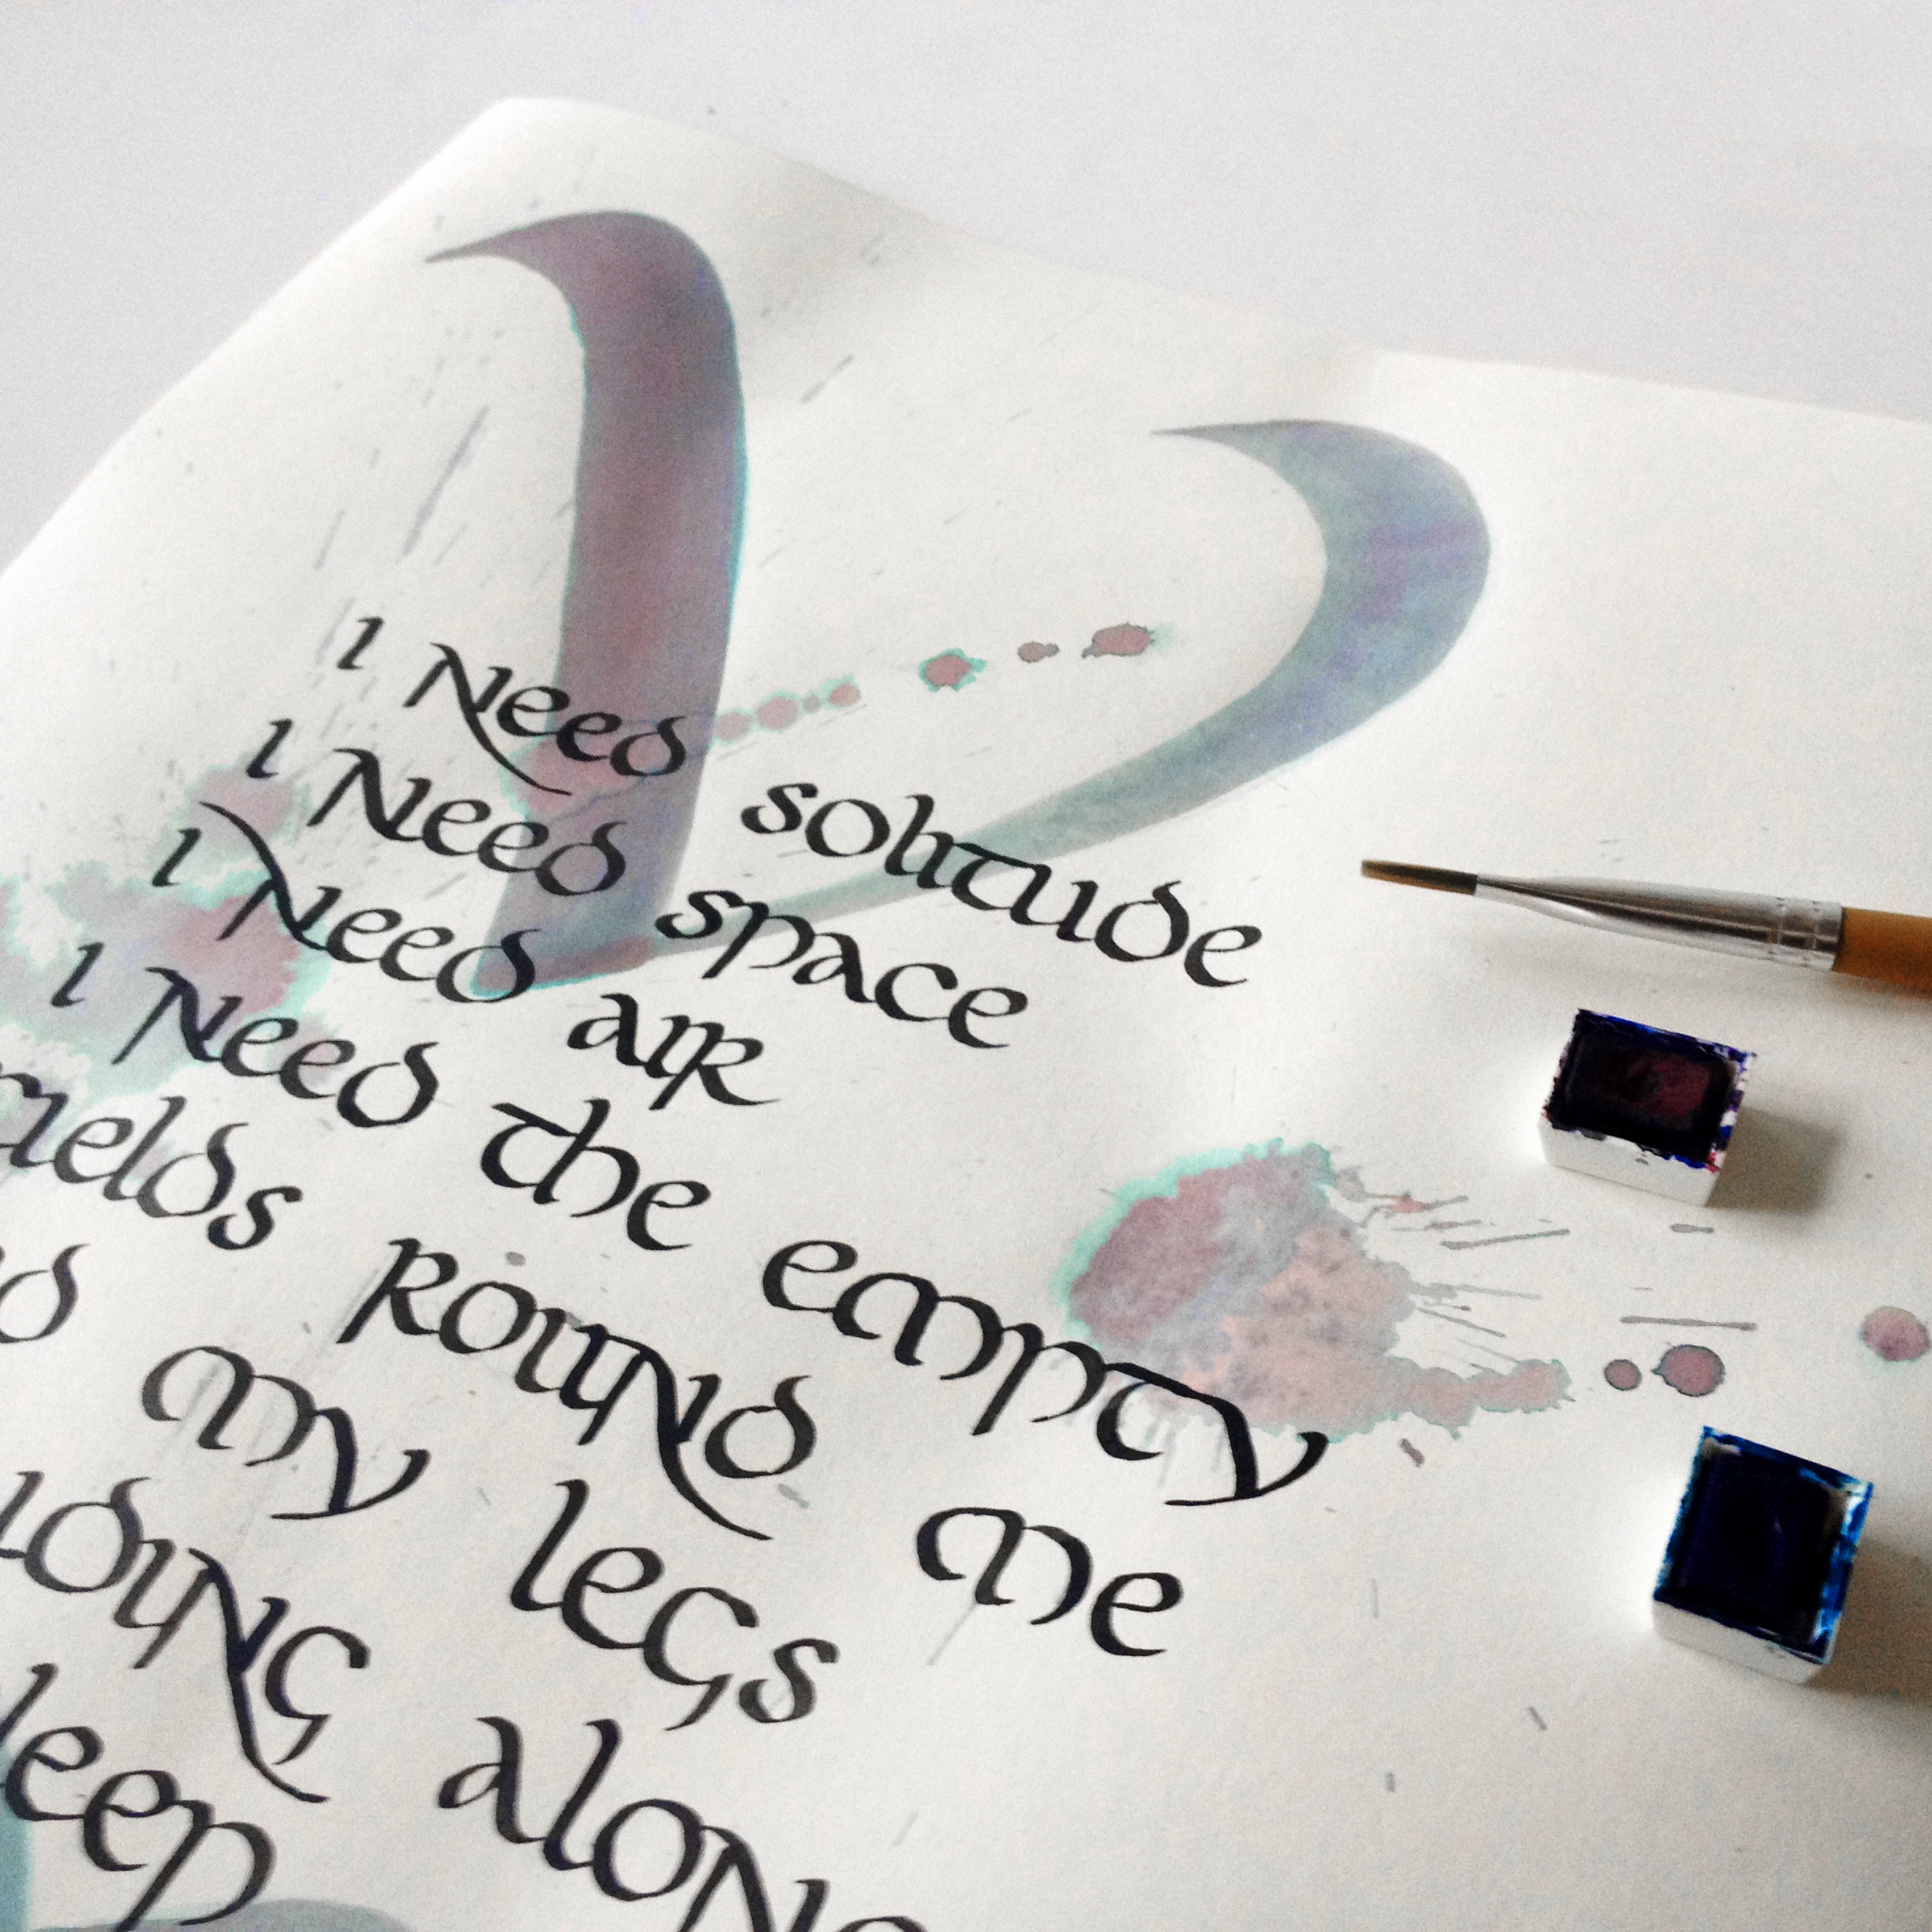 I Need solitude
I Need space
I Need air
I Need the empty
fields round me
my legs
along